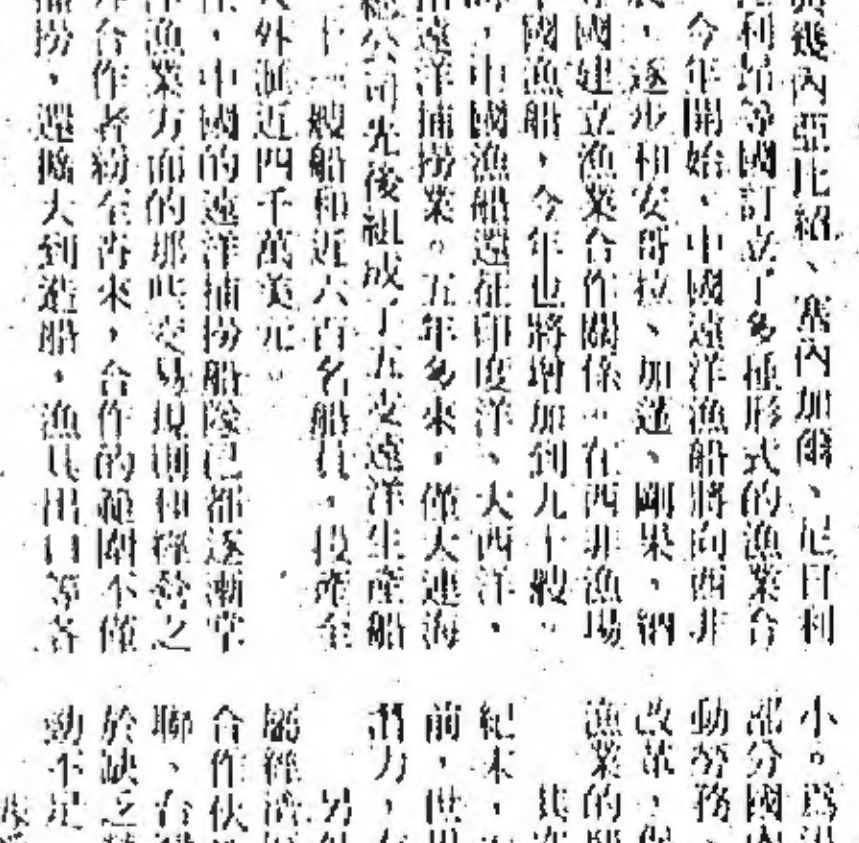 幾內亞比紹、塞內加爾、尼日利
利昂等國訂立了多種形式的漁業合
今年開始，中國遠洋漁船將向西非
，逐步和安哥拉、加蓬、剛果、納
國建立漁業合作關係。在西非漁場
國漁船，今年也將增加到九十艘。
，中國漁船還征印度洋、大西洋，
遠洋捕撈業。五年多來，僅大連海
總公司先後組成了五支遠洋生產船
十一艘船和近六百名船員，投產全
外匯近四千萬美元。
，中國的遠洋捕撈船隊已都逐漸掌
漁業方面的那些交易規則和經營之
合作者紛至沓來，合作的範圍不僅
撈，還擴大到造船，漁具出口等各
小。為
部分國內
動勞務
改革，
漁業的
紀末，
前，世界
潛力，
另外
屬經濟
合作伙
聯、台
於缺乏
勁不足